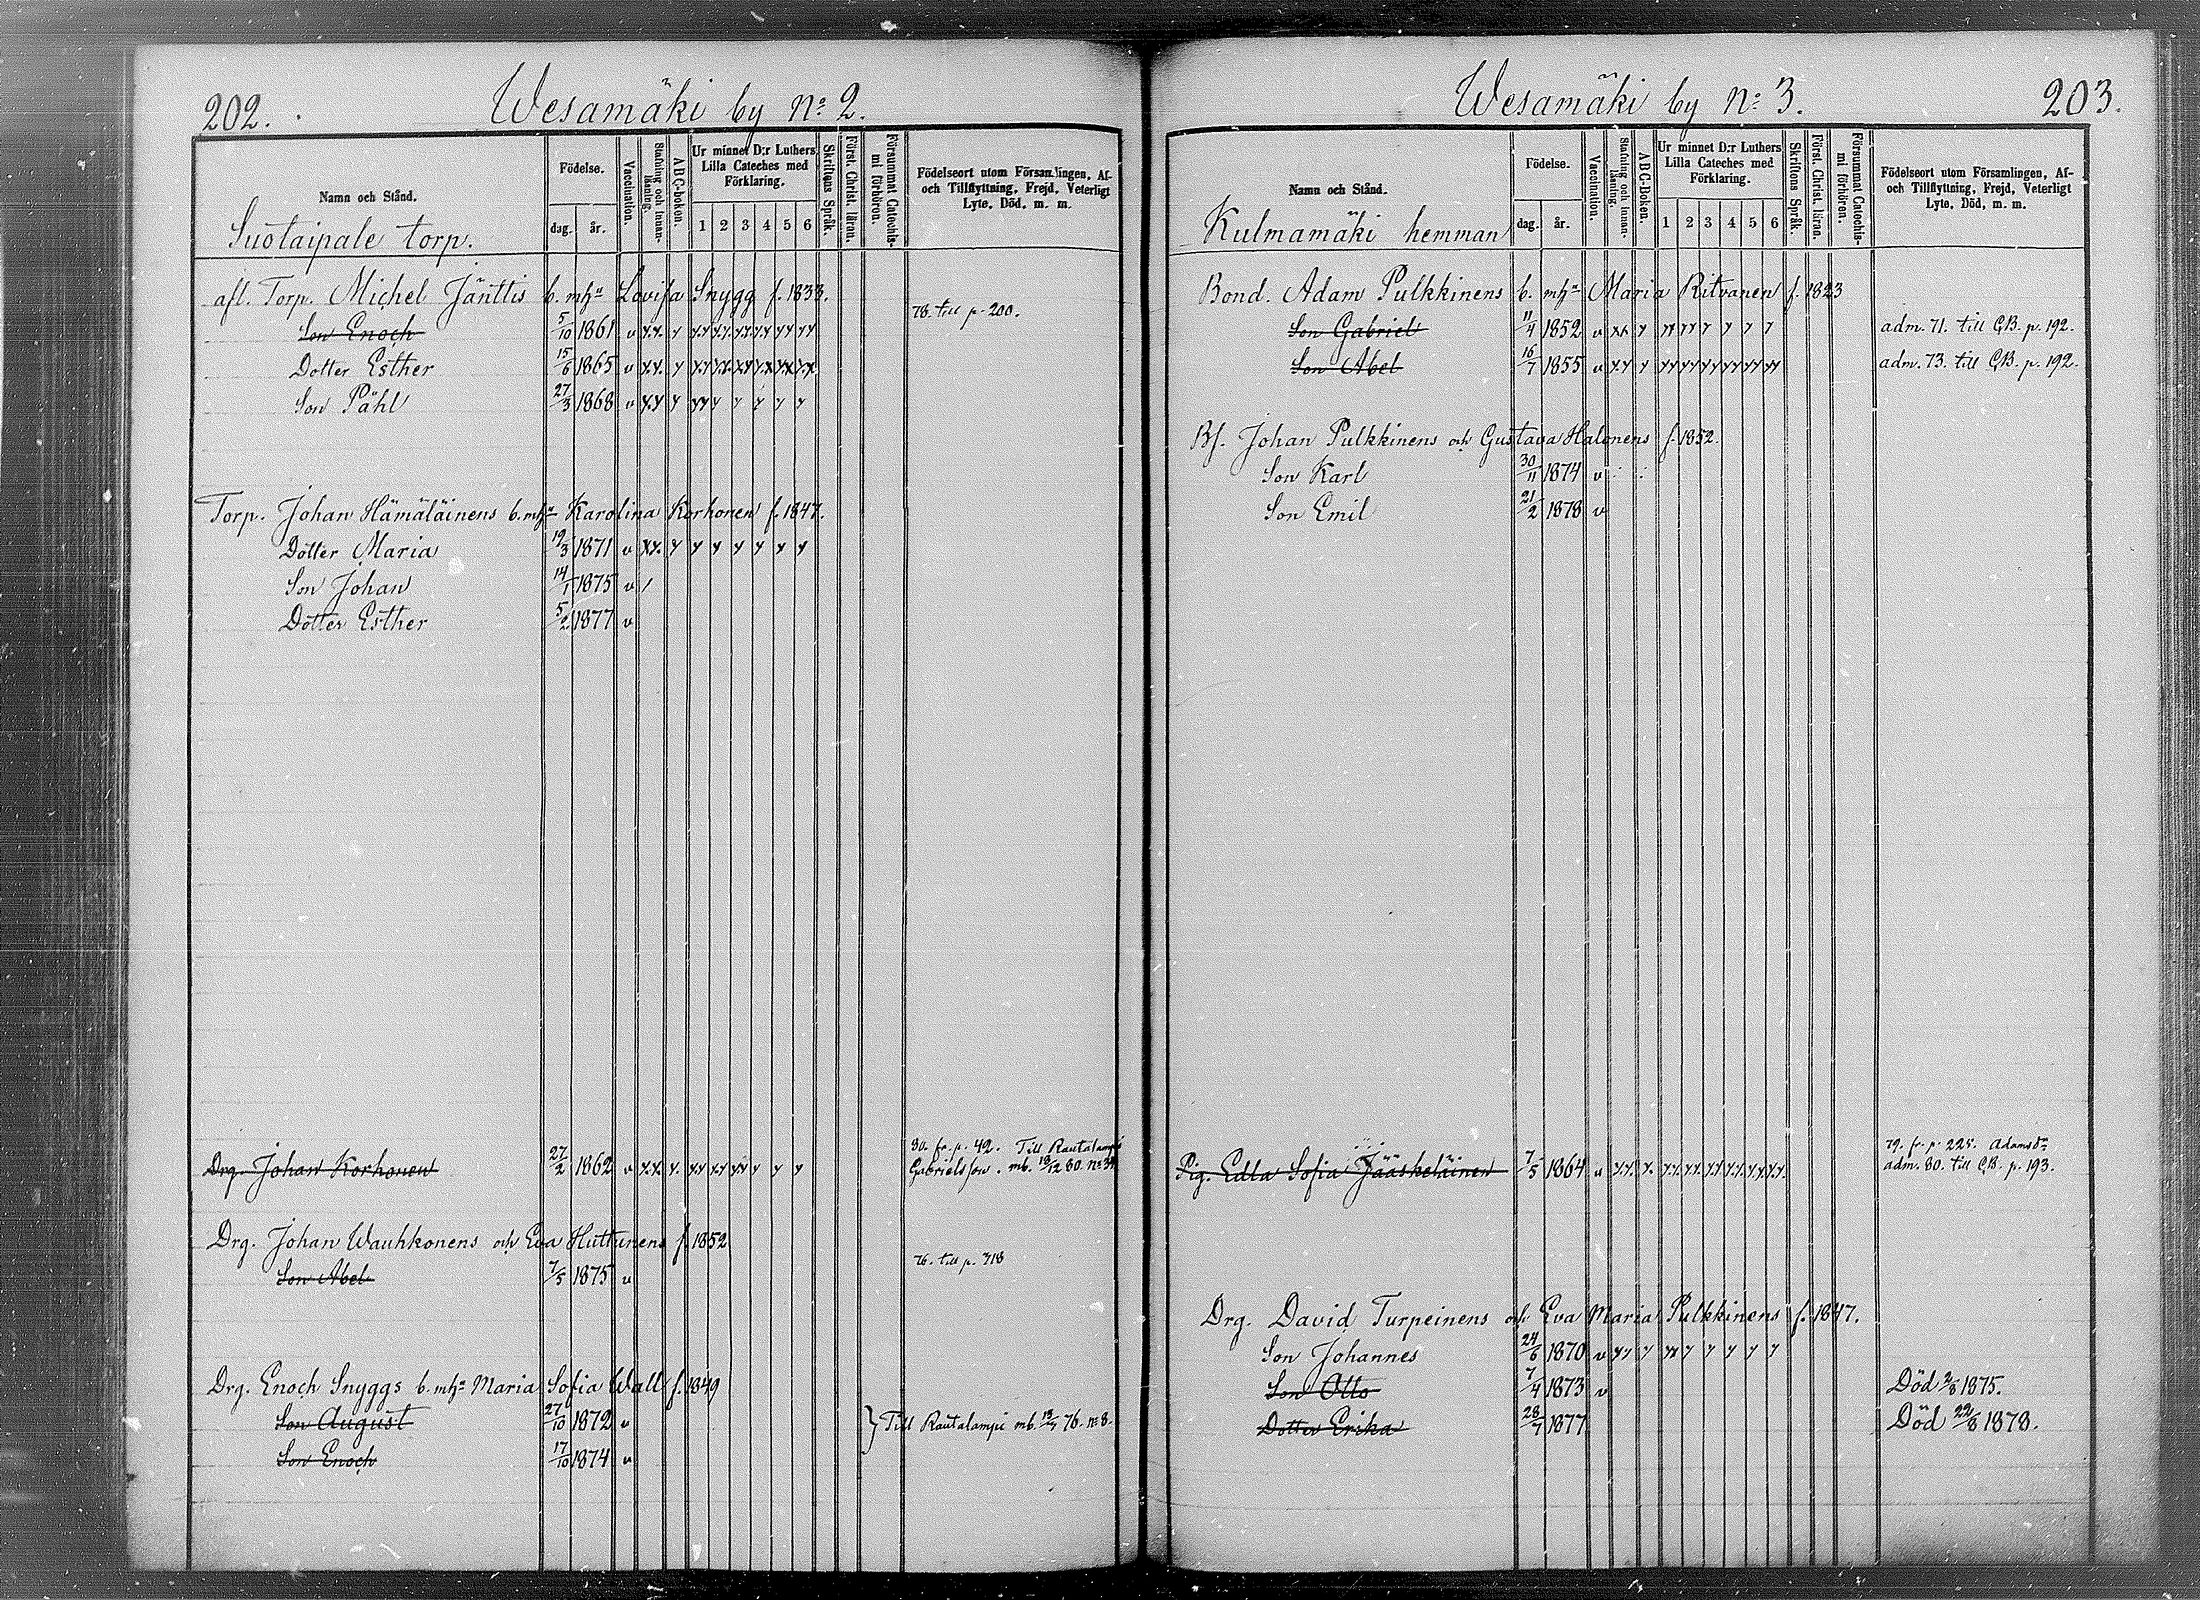 202.
Wesamäki by No 2.
Namn och Stånd.
Födelse.
dag.
år.
Vaccination.
Stafning och Innanläsning.
A B C-Boken.
Ur minnet D:r Luthers Lilla Cateches med Förklaring.
1 2 3 4 5 6
Skriftens Språk.
Först. Christ. läran.
Försummat Catechismi förhören.
Födelseort utom Församlingen, Af- och Tillflyttning, Frejd, Veterligt Lyte, Död, m. m.
Suotaipale torp.
afl. Torp. Michel Jänttis b. mha Lovisa Snygg f. 1833.
Son Enoch 5/10 1861 v 78. till p. 200.
Dotter Esther 15/6 1865 v
Son Påhl 27/3 1868 v
Torp. Johan Hämäläinens b. mha Karolina Korhonen f. 1847.
Dotter Maria 19/3 1871 v
Son Johan 14/1 1875 v /
Dotter Esther 5/2 1877 v
Drg. Johan Korhonen 27/2 1862 v 80. fr. p. 42. Till Rautalampi
Gabrielsson. mb. 18/12 80. no
Drg. Johan Wauhkonens och Eva Huttunens f. 1852
Son Abel 7/5 1875 v 76. till p. 318
Drg. Enoch Snyggs b. mha Maria Sofia Wall f. 1849
Son August 27/10 1872 v } Till Rautalampi mb. 76. no 8.
Son Enoch 17/10 1874 v
Wesamäki by No 3.
203.
Namn och Stånd.
Födelse.
dag.
år.
Vaccination.
Stafning och Innanläsning.
A B C-Boken.
Ur minnet D:r Luthers Lilla Cateches med Förklaring.
1 2 3 4 5 6
Skriftens Språk.
Först. Christ. läran.
Försummat Catechismi förhören.
Födelseort utom Församlingen, Af- och Tillflyttning, Frejd, Veterligt Lyte, Död, m. m.
Kulmamäki hemman
Bond. Adam Pulkkinens b. mha Maria Ritvanen f. 1823
Son Gabriel 11/4 1852 v adm. 71. till CB. p. 192.
Son Abel 16/7 1855 v adm. 73. till CB. p. 192.
Bs. Johan Pulkkinens och Gustava Halonens f. 1852.
Son Karl 30/11 1874 v
Son Emil 21/2 1878 v
Pig. Edla Sofia Jääskeläinen 7/5 1864 v 79. fr. p. 225. Adamsdr
adm. 80. till CB. p. 193.
Drg. David Turpeinens och Eva Maria Pulkkinens f. 1847.
Son Johannes 24/6 1870 v
Son Otto 7/4 1873 v Död 2/8 1875.
Dotter Erika 28/7 1877 Död 22/8 1878.